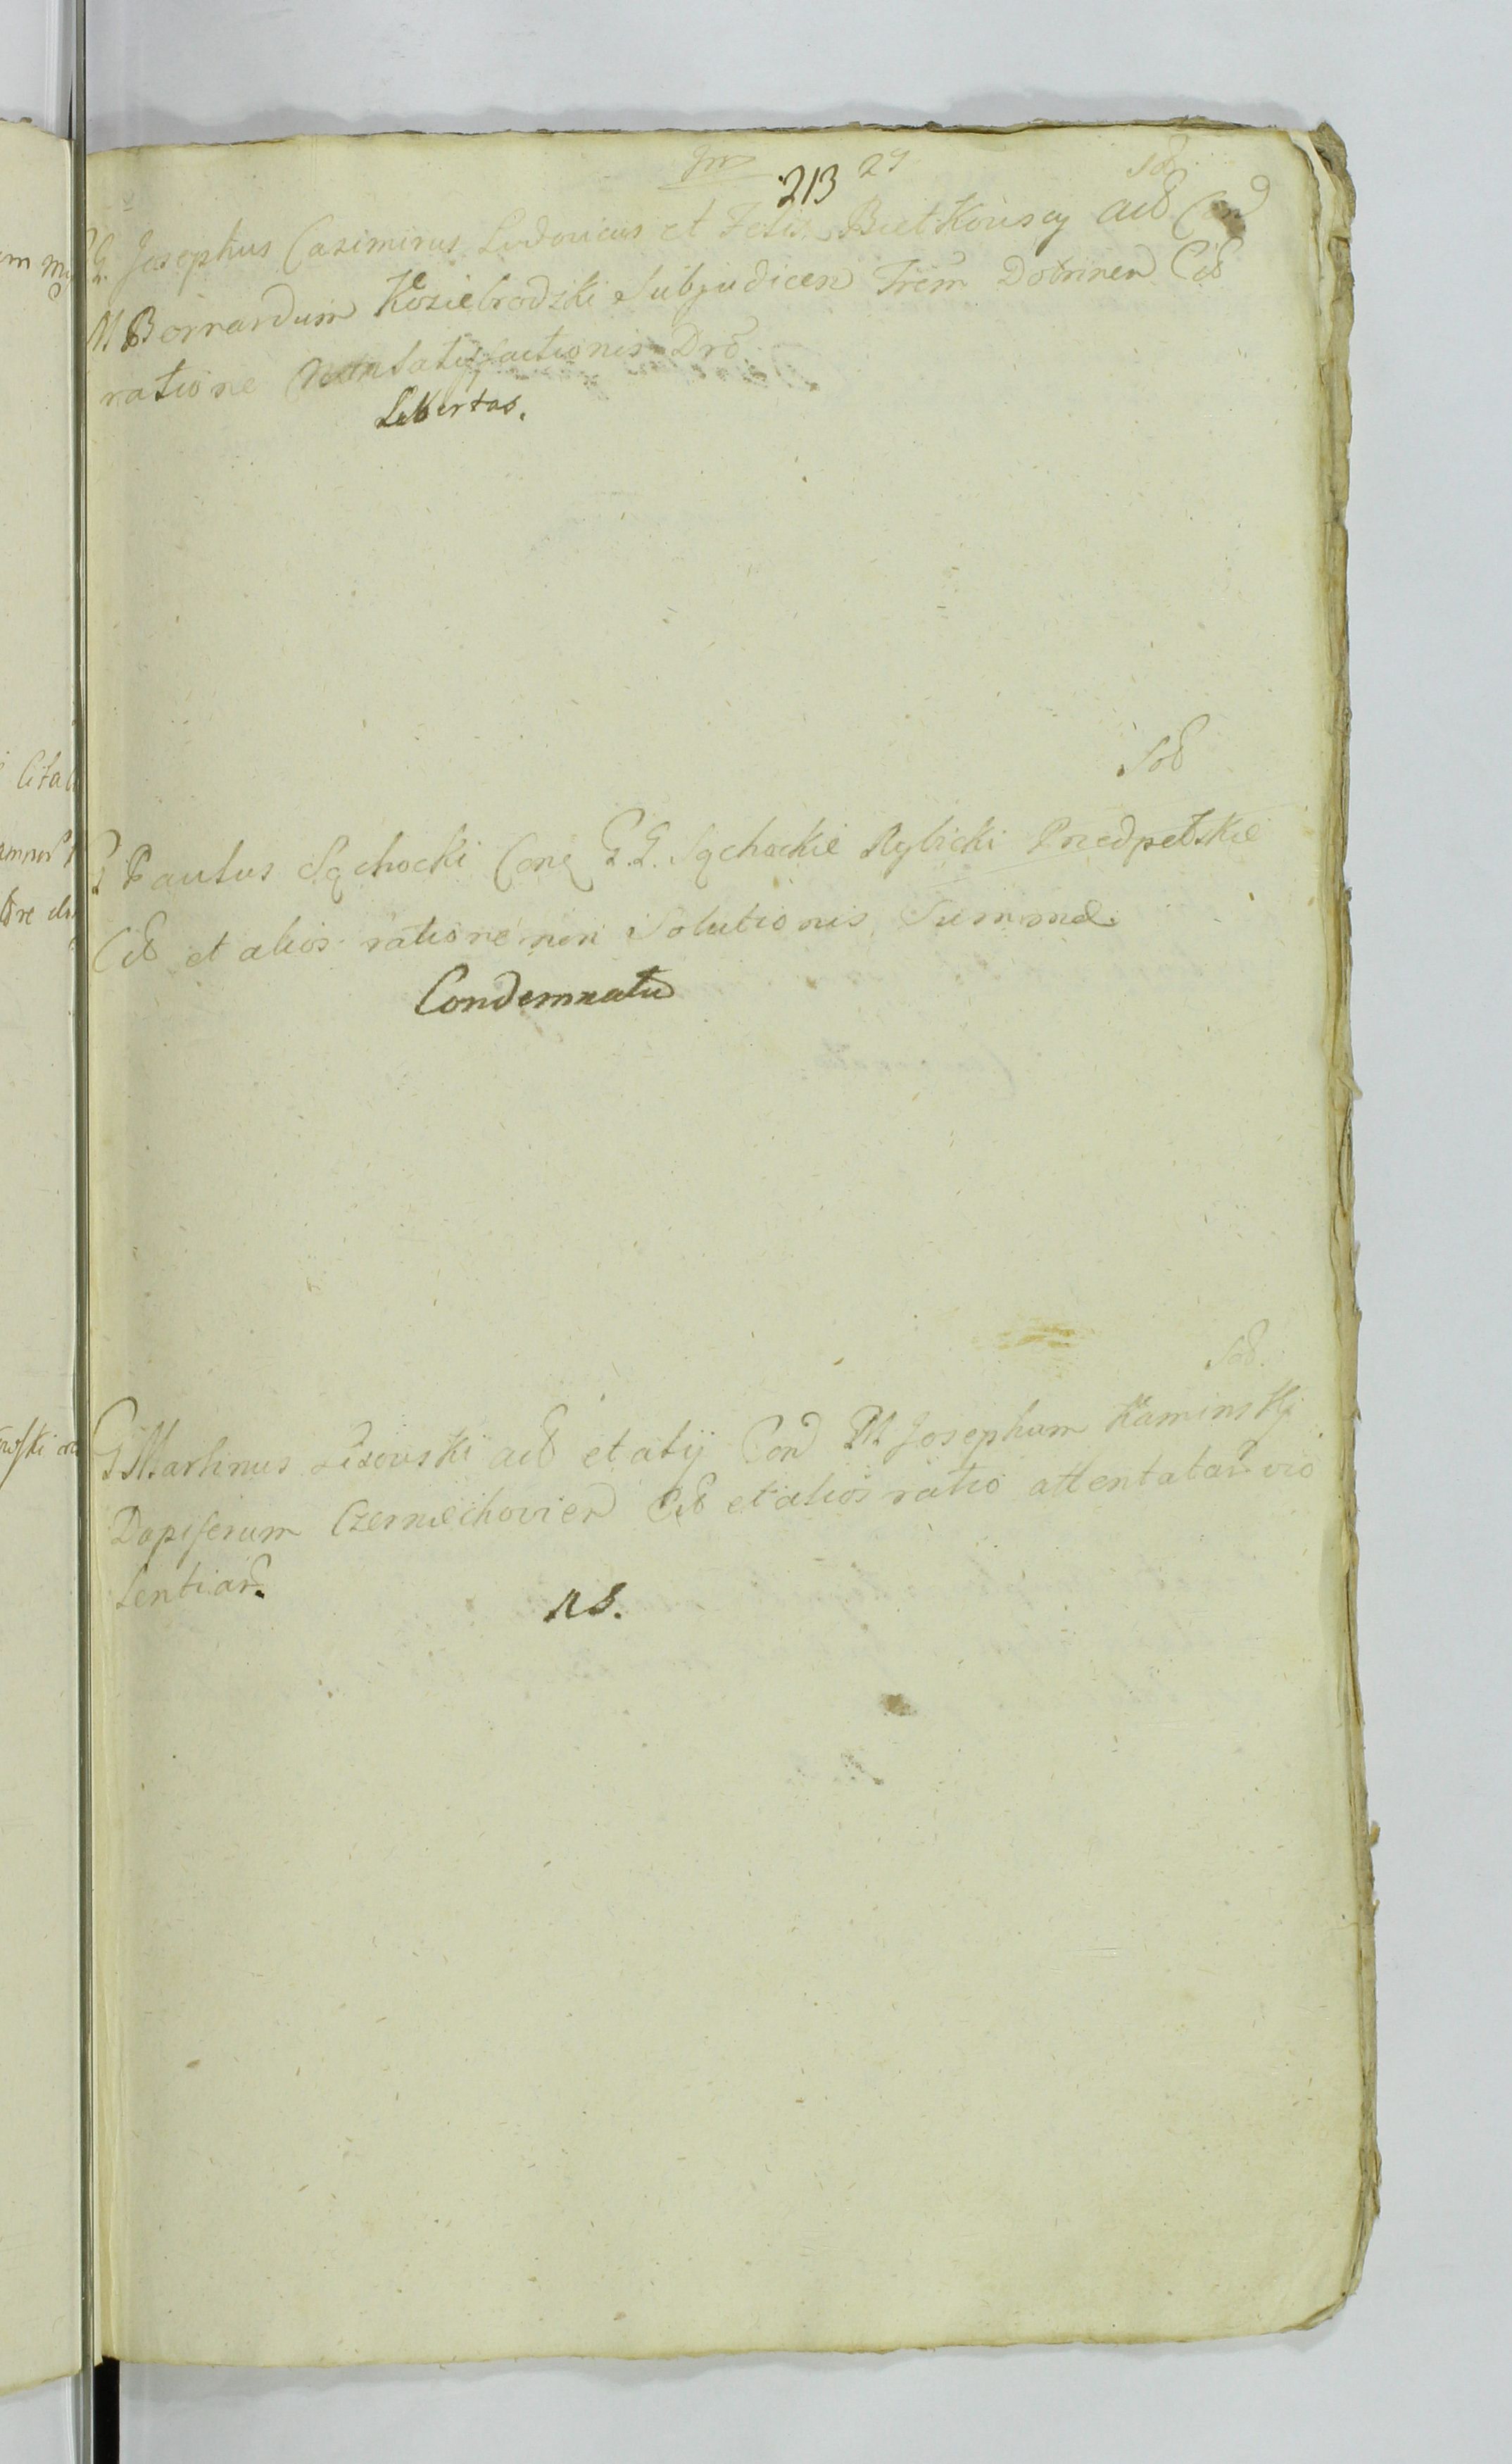 213 29
Sod
GG. Josephus Casimirus Ludovicus et Felix Bietkouscy act Con
M Bernardum Koziebrodzki Subjudicen Trem Dobrinen Cit
ratione non satisfactionis Dro
Libertas.
Sod
G Paulus Sąchocki Con G.G. Sąchockie Rybicki Przedpełskie
Cit et alios ratione non Solutionis Summæ.
Condemnatu
Sod.
G Martinus Lisouski act et alij Con M Josephum Kaminskj
Dapiferum Czerniechovien Cit et alios ratio attentatar vio
lentiar.
NS.